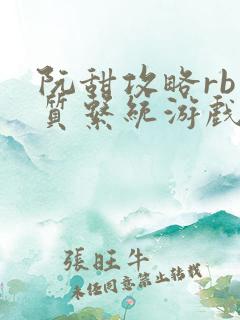 阮甜攻略rb
質系統游戲
張旺牛
未经同意禁止转载